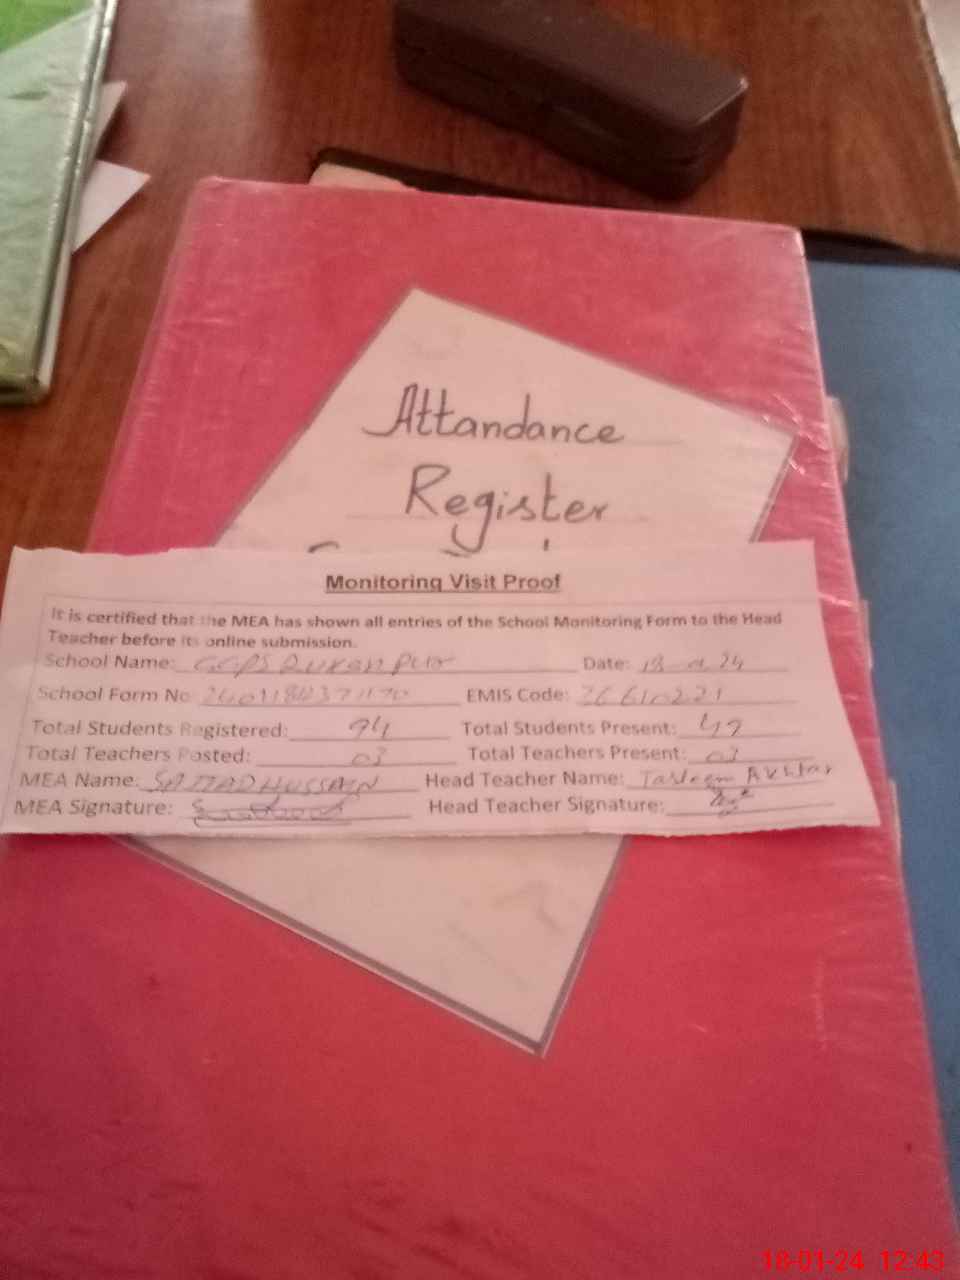 Attandance
Register
Monitoring Visit Proof
It is certified that the MEA has shown all entries of the School Monitoring Form to the Head
Teacher before its online submission.
School Name: GGPS Date: 18 24
School Form No EMIS Code:
Total Students Registered: 94 Total Students Present:
Total Teachers Posted: 03 Total Teachers Present: 03
MEA Name: SAJJAD HUSSAIN Head Teacher Name: Tasleem Akhtar
MEA Signature: Head Teacher Signature:
18-01-24 12:43